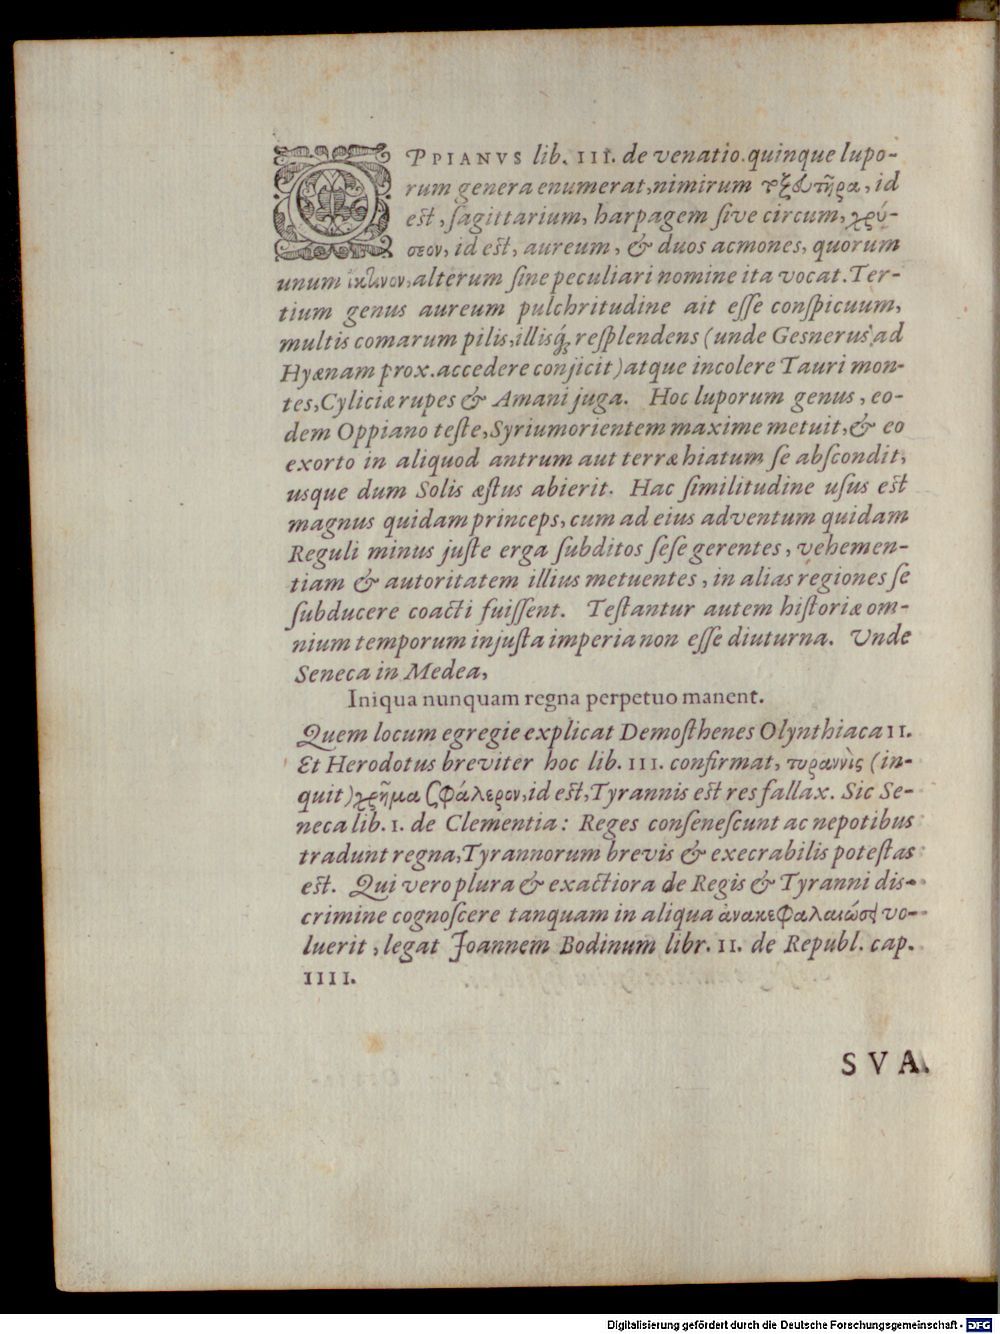 OPPIANVS lib. III. de venatio. quinque lupo-
rum genera enumerat, nimirum τοξευτῆρα, id
est, sagittarium, harpagem sive circum, χρύ-
σεον, id est, aureum, & duos acmones, quorum
unum ἰκτῖνον, alterum sine peculiari nomine ita vocat. Ter-
tium genus aureum pulchritudine ait esse conspicuum,
multis comarum pilis, illisq́; resplendens (unde Gesnerus ad
Hyænam prox. accedere conjicit) atque incolere Tauri mon-
tes, Cyliciæ rupes & Amani juga. Hoc luporum genus, eo-
dem Oppiano teste, Syrium orientem maxime metuit, & eo
exorto in aliquod antrum aut terræ hiatum se abscondit,
usque dum Solis æstus abierit. Hac similitudine usus est
magnus quidam princeps, cum ad eius adventum quidam
Reguli minus juste erga subditos sese gerentes, vehemen-
tiam & autoritatem illius metuentes, in alias regiones se
subducere coacti fuissent. Testantur autem historiæ om-
nium temporum injusta imperia non esse diuturna. Vnde
Seneca in Medea,
Iniqua nunquam regna perpetuo manent.
Quem locum egregie explicat Demosthenes Olynthiaca II.
Et Herodotus breviter hoc lib. III. confirmat, τυραννὶς (in-
quit) χρῆμα σφάλερον, id est, Tyrannis est res fallax. Sic Se-
neca lib. I. de Clementia: Reges consenescunt ac nepotibus
tradunt regna, Tyrannorum brevis & execrabilis potestas
est. Qui vero plura & exactiora de Regis & Tyranni dis-
crimine cognoscere tanquam in aliqua ἀνακεφαλαιώσει vo-
luerit, legat Joannem Bodinum libr. II. de Republ. cap.
IIII.
SVA.
Digitalisierung gefördert durch die Deutsche Forschungsgemeinschaft - DFG